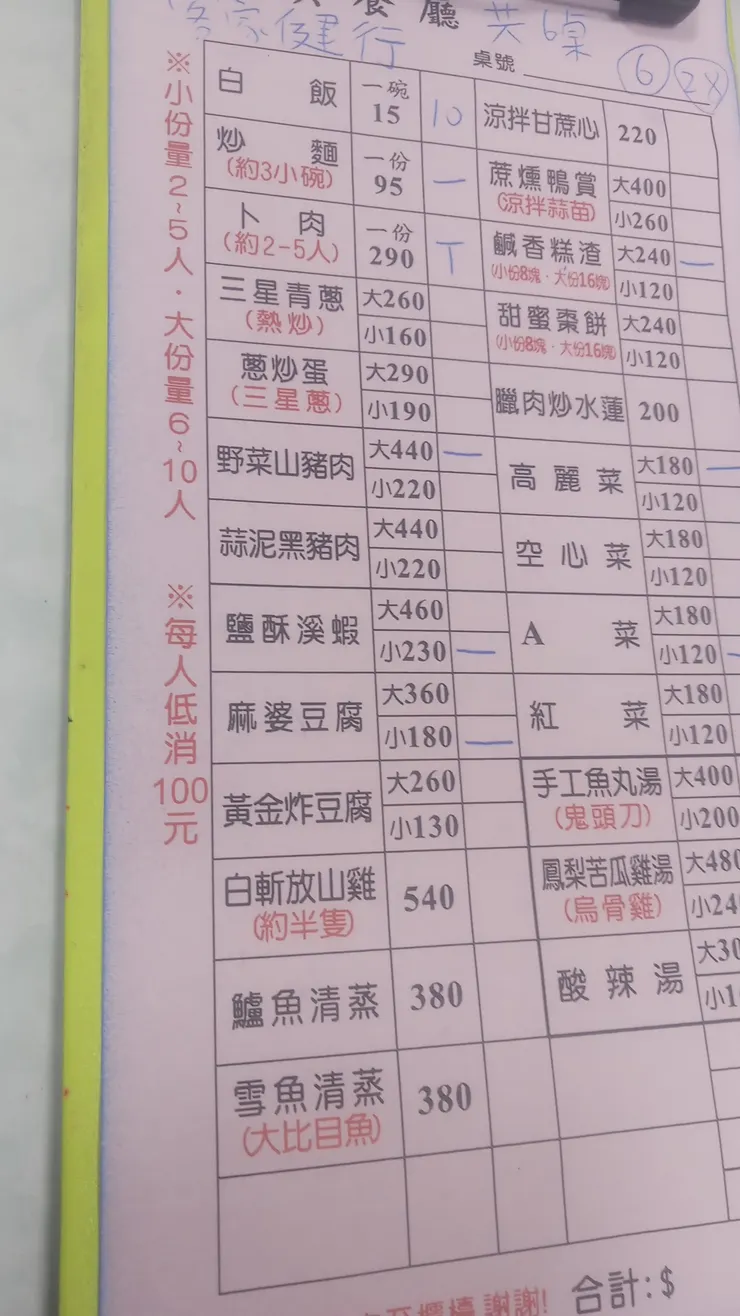 餐廳
客家健行 共6桌
桌號 ⑥ 28
※小份量2~5人・大份量6~10人 ※每人低消100元
白飯 一碗 15 10
炒麵 (約3小碗) 一份 95 一
卜肉 (約2-5人) 一份 290 T
三星青蔥 (熱炒) 大260
小160
蔥炒蛋 (三星蔥) 大290
小190
野菜山豬肉 大440 一
小220
蒜泥黑豬肉 大440
小220
鹽酥溪蝦 大460
小230 一
麻婆豆腐 大360
小180 一
黃金炸豆腐 大260
小130
白斬放山雞 (約半隻) 540
鱸魚清蒸 380
雪魚清蒸 (大比目魚) 380
涼拌甘蔗心 220
蔗燻鴨賞 (涼拌蒜苗) 大400
小260
鹹香糕渣 (小份8塊・大份16塊) 大240 一
小120
甜蜜棗餅 (小份8塊・大份16塊) 大240
小120
臘肉炒水蓮 200
高麗菜 大180 一
小120
空心菜 大180
小120
A菜 大180
小120 一
紅菜 大180
小120
手工魚丸湯 (鬼頭刀) 大400
小200
鳳梨苦瓜雞湯 (烏骨雞) 大480
小24
酸辣湯 大30
小1
櫃檯 謝謝! 合計:$